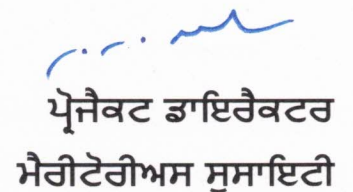 ਪ੍ਰੋਜੈਕਟ ਡਾਇਰੈਕਟਰ
ਮੈਰੀਟੋਰੀਅਸ ਸੁਸਾਇਟੀ